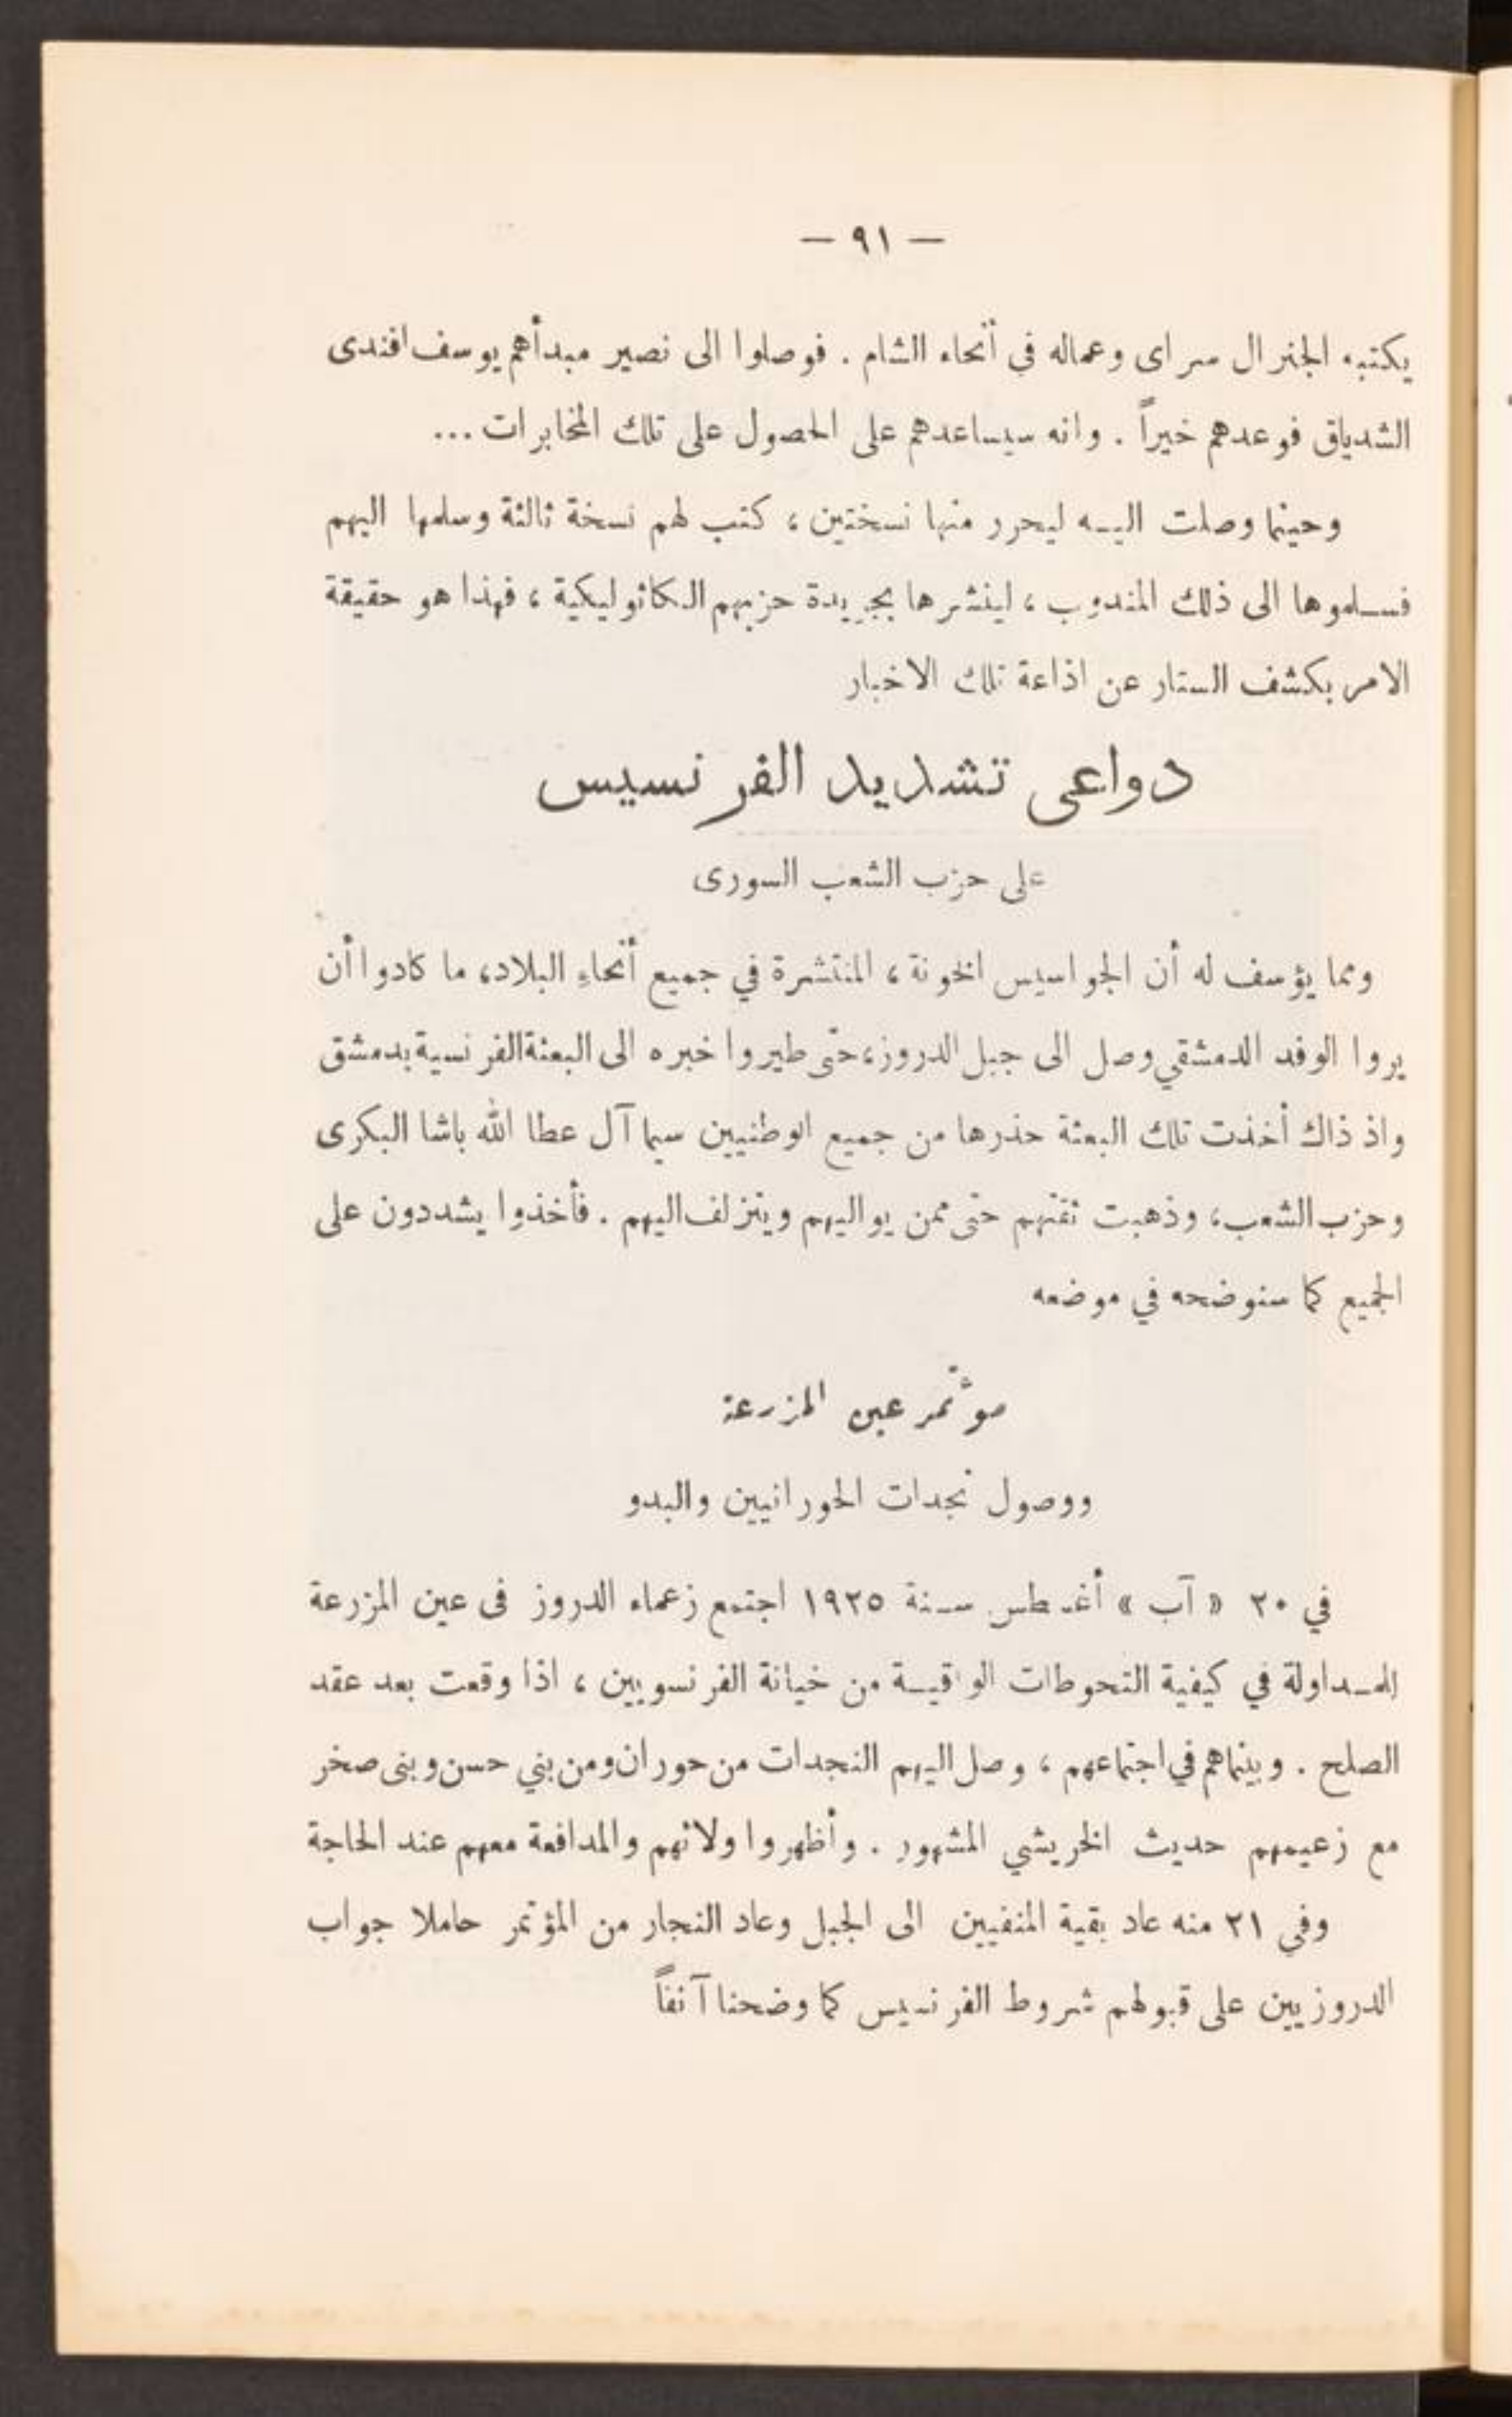 — ٩١ —
يكتبه الجنرال سراى وعماله في أنحاء الشام . فوصلوا الى نصير مبدأهم يوسف افندى
الشدياق فوعدهم خيراً . وانه سيساعدهم على الحصول على تلك المخابرات ...
وحينما وصلت اليــه ليحرر منها نسختين ، كتب لهم نسخة ثالثة وسلمها اليهم
فســلموها الى ذلك المندوب ، لينشرها بجريدة حزبهم الكاثوليكية ، فهذا هو حقيقة
الامر بكشف الستار عن اذاعة تلك الاخبار
دواعى تشديد الفرنسيس
على حزب الشعب السورى
ومما يؤسف له أن الجواسيس الخونة ، المنتشرة في جميع أنحاءِ البلاد، ما كادوا أن
يروا الوفد الدمشقي وصل الى جبل الدروز، حتى طيروا خبره الى البعثة الفرنسية بدمشق
واذ ذاك أخذت تلك البعثة حذرها من جميع الوطنيين سيما آل عطا الله باشا البكرى
وحزب الشعب، وذهبت ثقتهم حتى ممن يواليهم ويتزلف اليهم . فأخذوا يشددون على
الجميع كما سنوضحه في موضعه
مؤتمر عين المزرعة
ووصول نجدات الحورانيين والبدو
في ٢٠ « آب » أغسطس ســنة ١٩٢٥ اجتمع زعماء الدروز فى عين المزرعة
للمــداولة في كيفية التحوطات الواقيــة من خيانة الفرنسويين ، اذا وقعت بعد عقد
الصلح . وبينماهم في اجتماعهم ، وصل اليهم النجدات من حوران ومن بني حسن وبنى صخر
مع زعيمهم حديث الخريشي المشهور . وأظهروا ولائهم والمدافعة معهم عند الحاجة
وفي ٢١ منه عاد بقية المنفيين الى الجبل وعاد النجار من المؤتمر حاملا جواب
الدروزيين على قبولهم شروط الفرنسيس كما وضحنا آنفاً